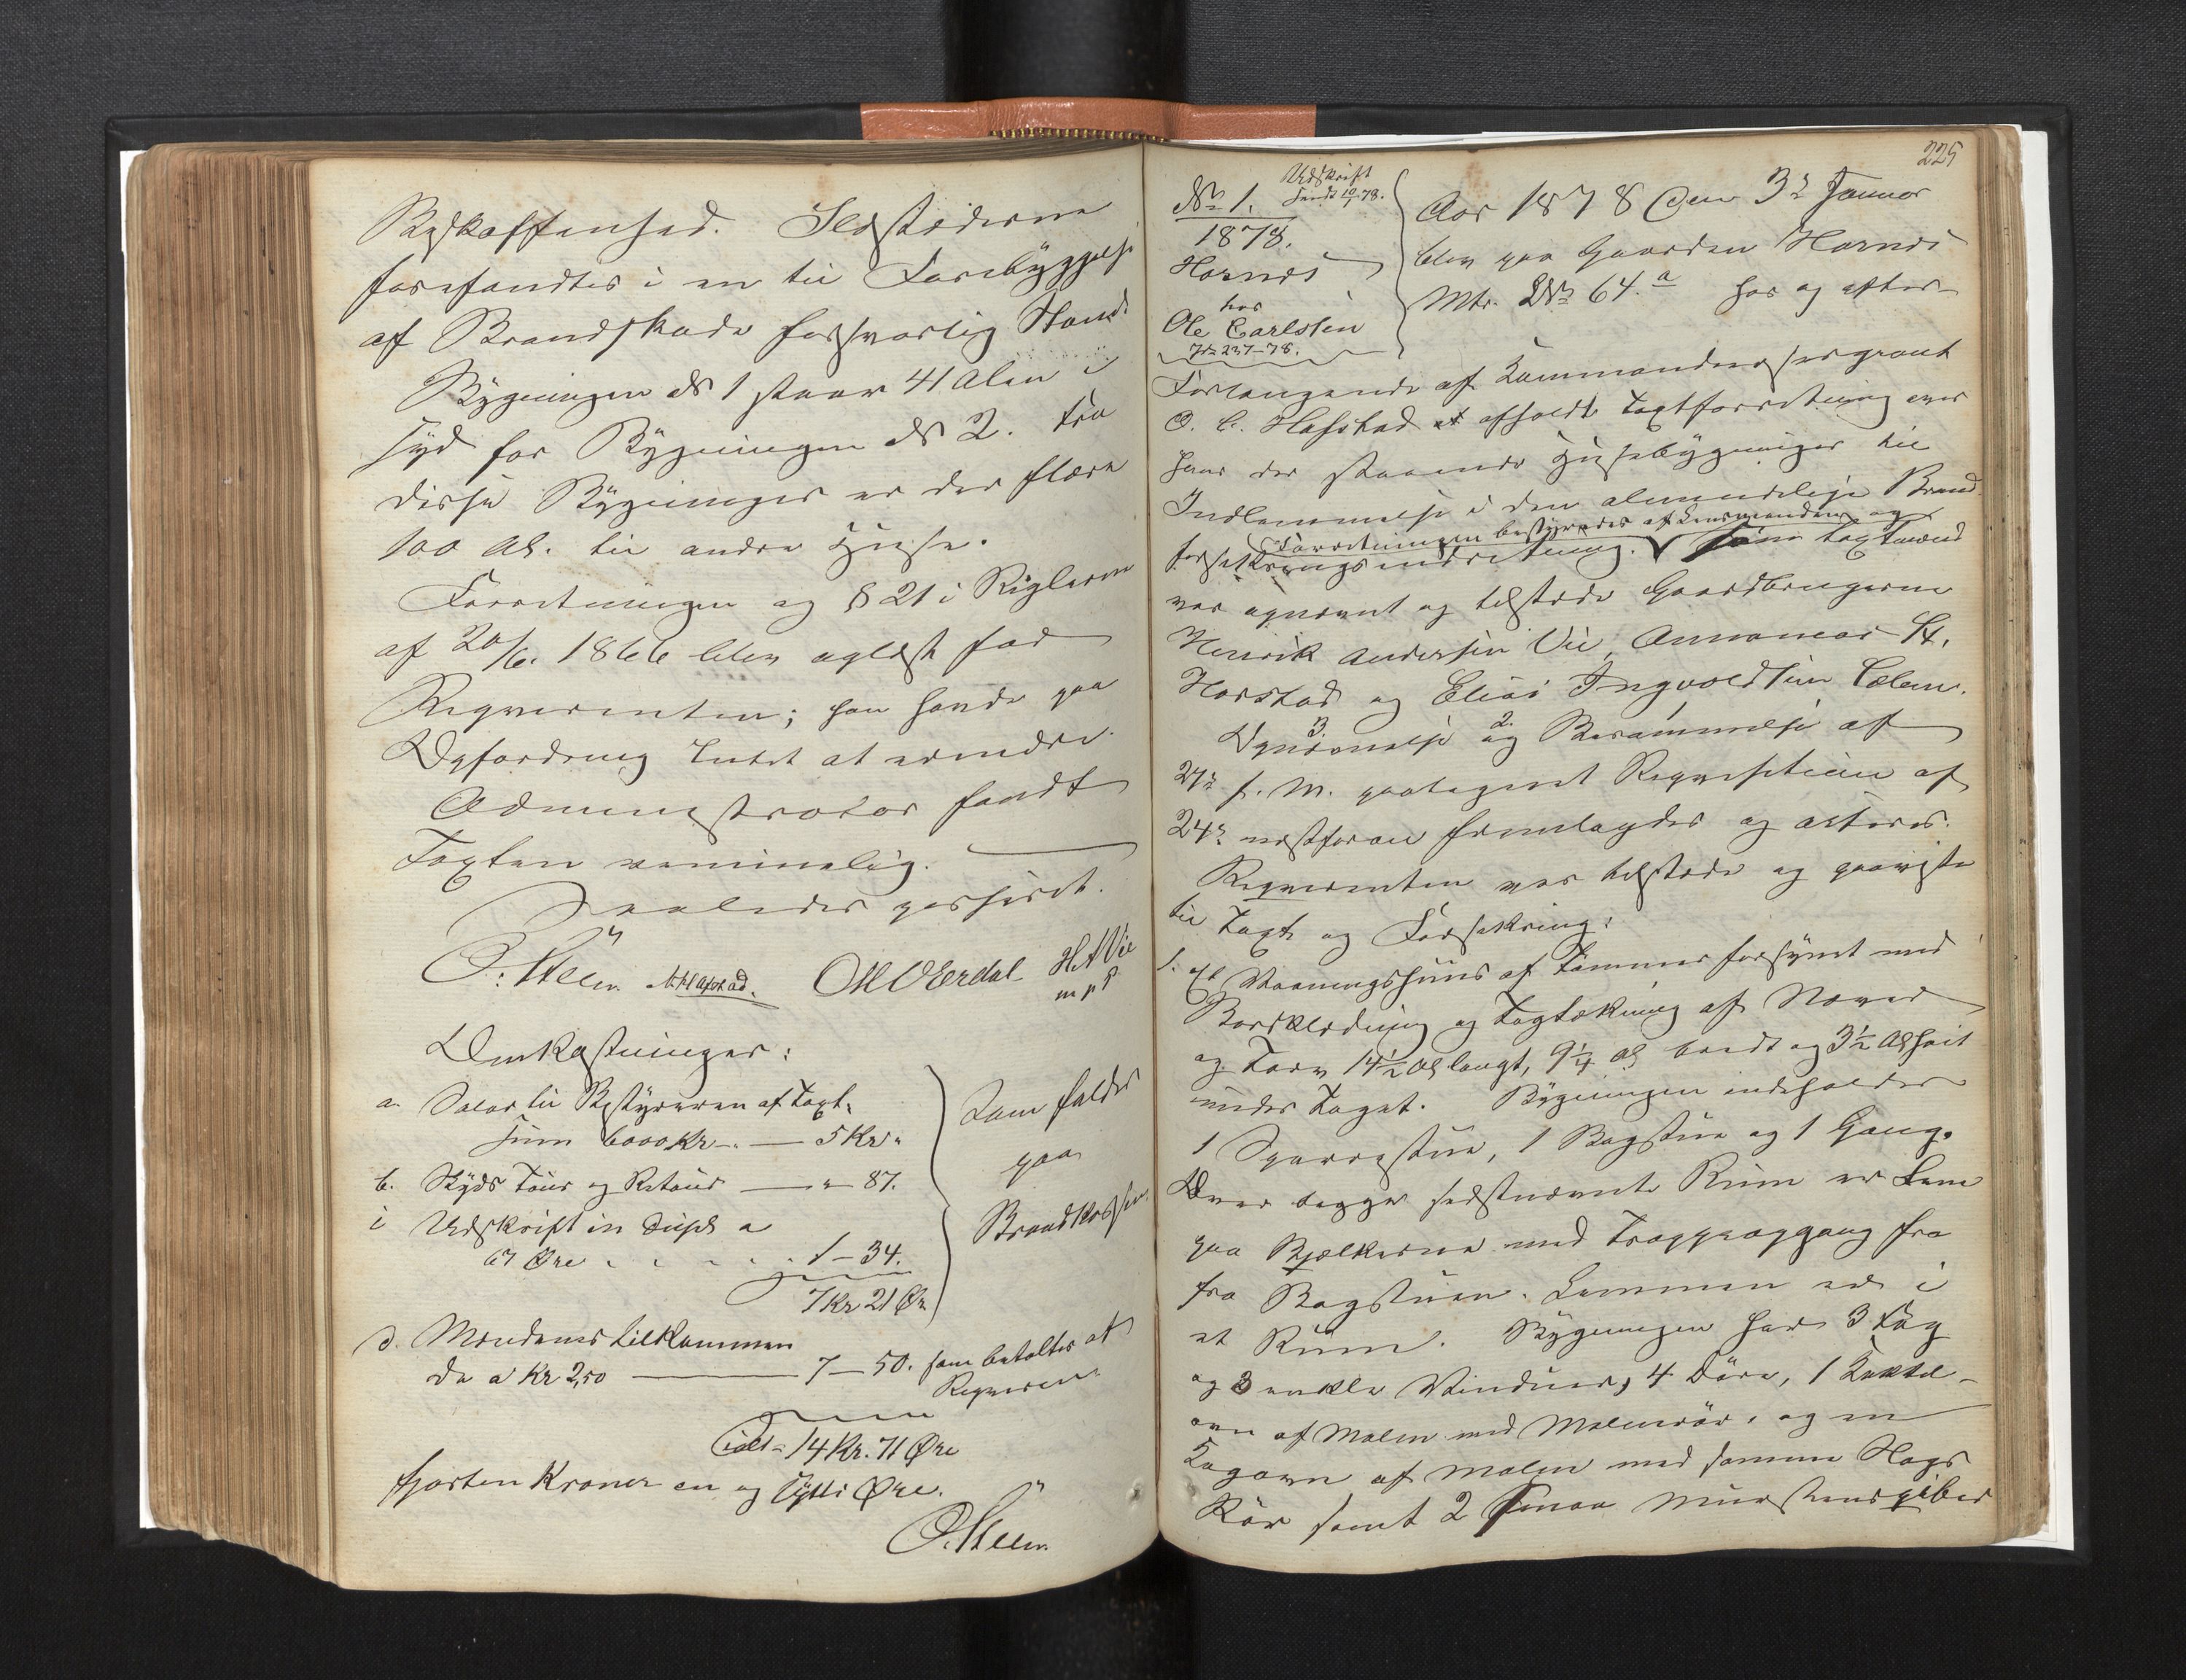 Beskaffenhed. Ildstederne
forefandtes i en til Forebyggelse
af Brandskade forsvarlig Stand.
Bygningen No 1 staar 41 Alen i
Syd for Bygningen No 2. Fra
disse Bygninger er der flere
100 Al. til andre Huse.
Forretningen og § 21 i Reglerne
af 20/6. 1866 blev oplæst for
Reqvirenten; han havde paa
Opfordring Intet at erindre.
Administrator fandt
Taxten rimelig.
Saaledes passeret.
O. Steen. OMOErdal HAVie
m p P
Omkostninger:
a. Salar til Bestyreren af Taxt,
Sum 6000 Kr. — 5 Kr "
b. Skyds Tour og Retour — " — 87.
c Udskrift in Dupl a
67 Øre . . . . 1 — 34.
7 Kr 21 Ør
Som falder
paa
Brandkassen
d. Mændenes Tilkommen
de a Kr 2,50 — 7 — 50. som betaltes af
Reqvirenten
ialt = 14 Kr. 71 Øre
fjorten Kroner en og sytti Øre.
O. Steen.
225
No 1. Udskrift
sendt 10/1 78.
1878.
Hornes
hos
Ole Carlsen
Jr 237-78.
Aar 1878 den 3de Januar
blev paa Gaarden Hornes
Mtr. No 64.a hos og efter
Forlangende af Kommandeersergeant
O. C. Hafstad afholdt Taxtforretning over
hans der staaende Husebygninger til
Indlemmelse i den almindelige Brand
Forretningen bestyredes af Lensmanden og
forsikringsindretning. som Taxtmænd
var opnævnt og tilstede Gaardbrugerne
Henrik Andersen Vie, Annanias H.
Harstad og Elias Ingvoldsen
Opnævnelse 3 og 2. Berammelse af
27de f. M. paategnet Reqvisition af
24de næstforan fremlagdes og acteres.
Reqvirenten var tilstede og paaviste
til Taxt og Forsikring:
1. Et Vaaningshuus af Tømmer forsynet med
Bordklædning og Tagtækning af Næver
og Torv 14½ Al langt, 9¼ Al bredt og 3½ Al høit
under Taget. Bygningen indeholder
1 Sparrestue, 1 Bagstue og 1 Gang.
Over begge sidstnævnte Rum er Lem
paa Bjælkerne med Trappeopgang fra
fra Bagstuen. Lemmen er i
et Rum. Bygningen har 3 Fag
og 3 enkle Vinduer, 4 Døre, 1 Kakkel-
ovn af Malm med Malmrør, og en
Kogovn af Malm med samme Slags
Rør samt 2 smaa Murstenspiber